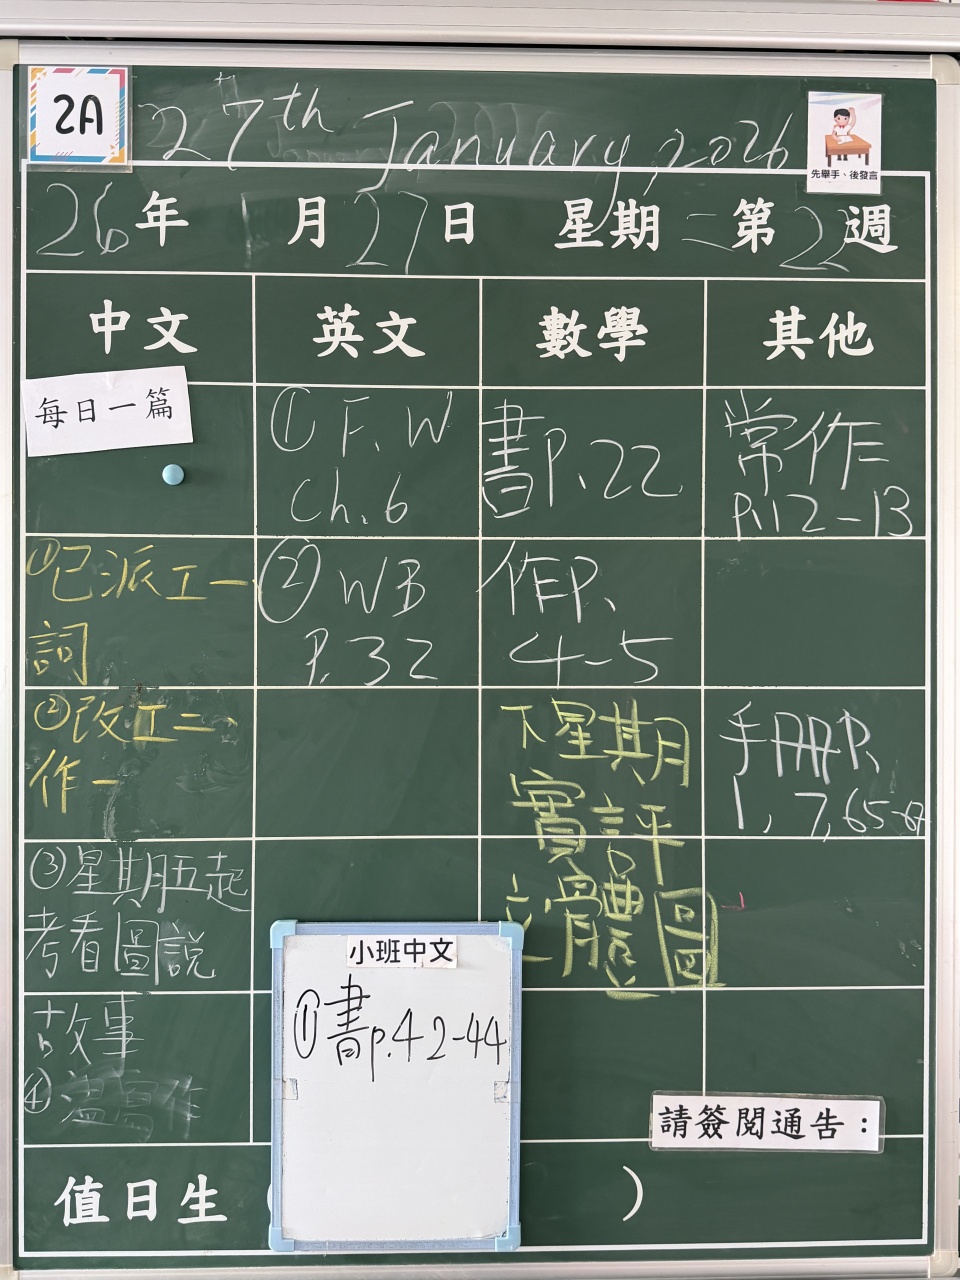 2A
27th January, 2026
先舉手、後發言
26年1月27日 星期二第22週
中文 英文 數學 其他
每日一篇
①已派工一
詞
②改工二、
作一
③星期五起
考看圖說
故事
④溫寫作
① F.W
Ch.6
② WB
P.32
書P.22
作P.
4-5
下星期月
實評
立體圖
常作
P.12-13
手冊P.
1, 7, 65-67
小班中文
①書p.42-44
請簽閱通告：
值日生
)